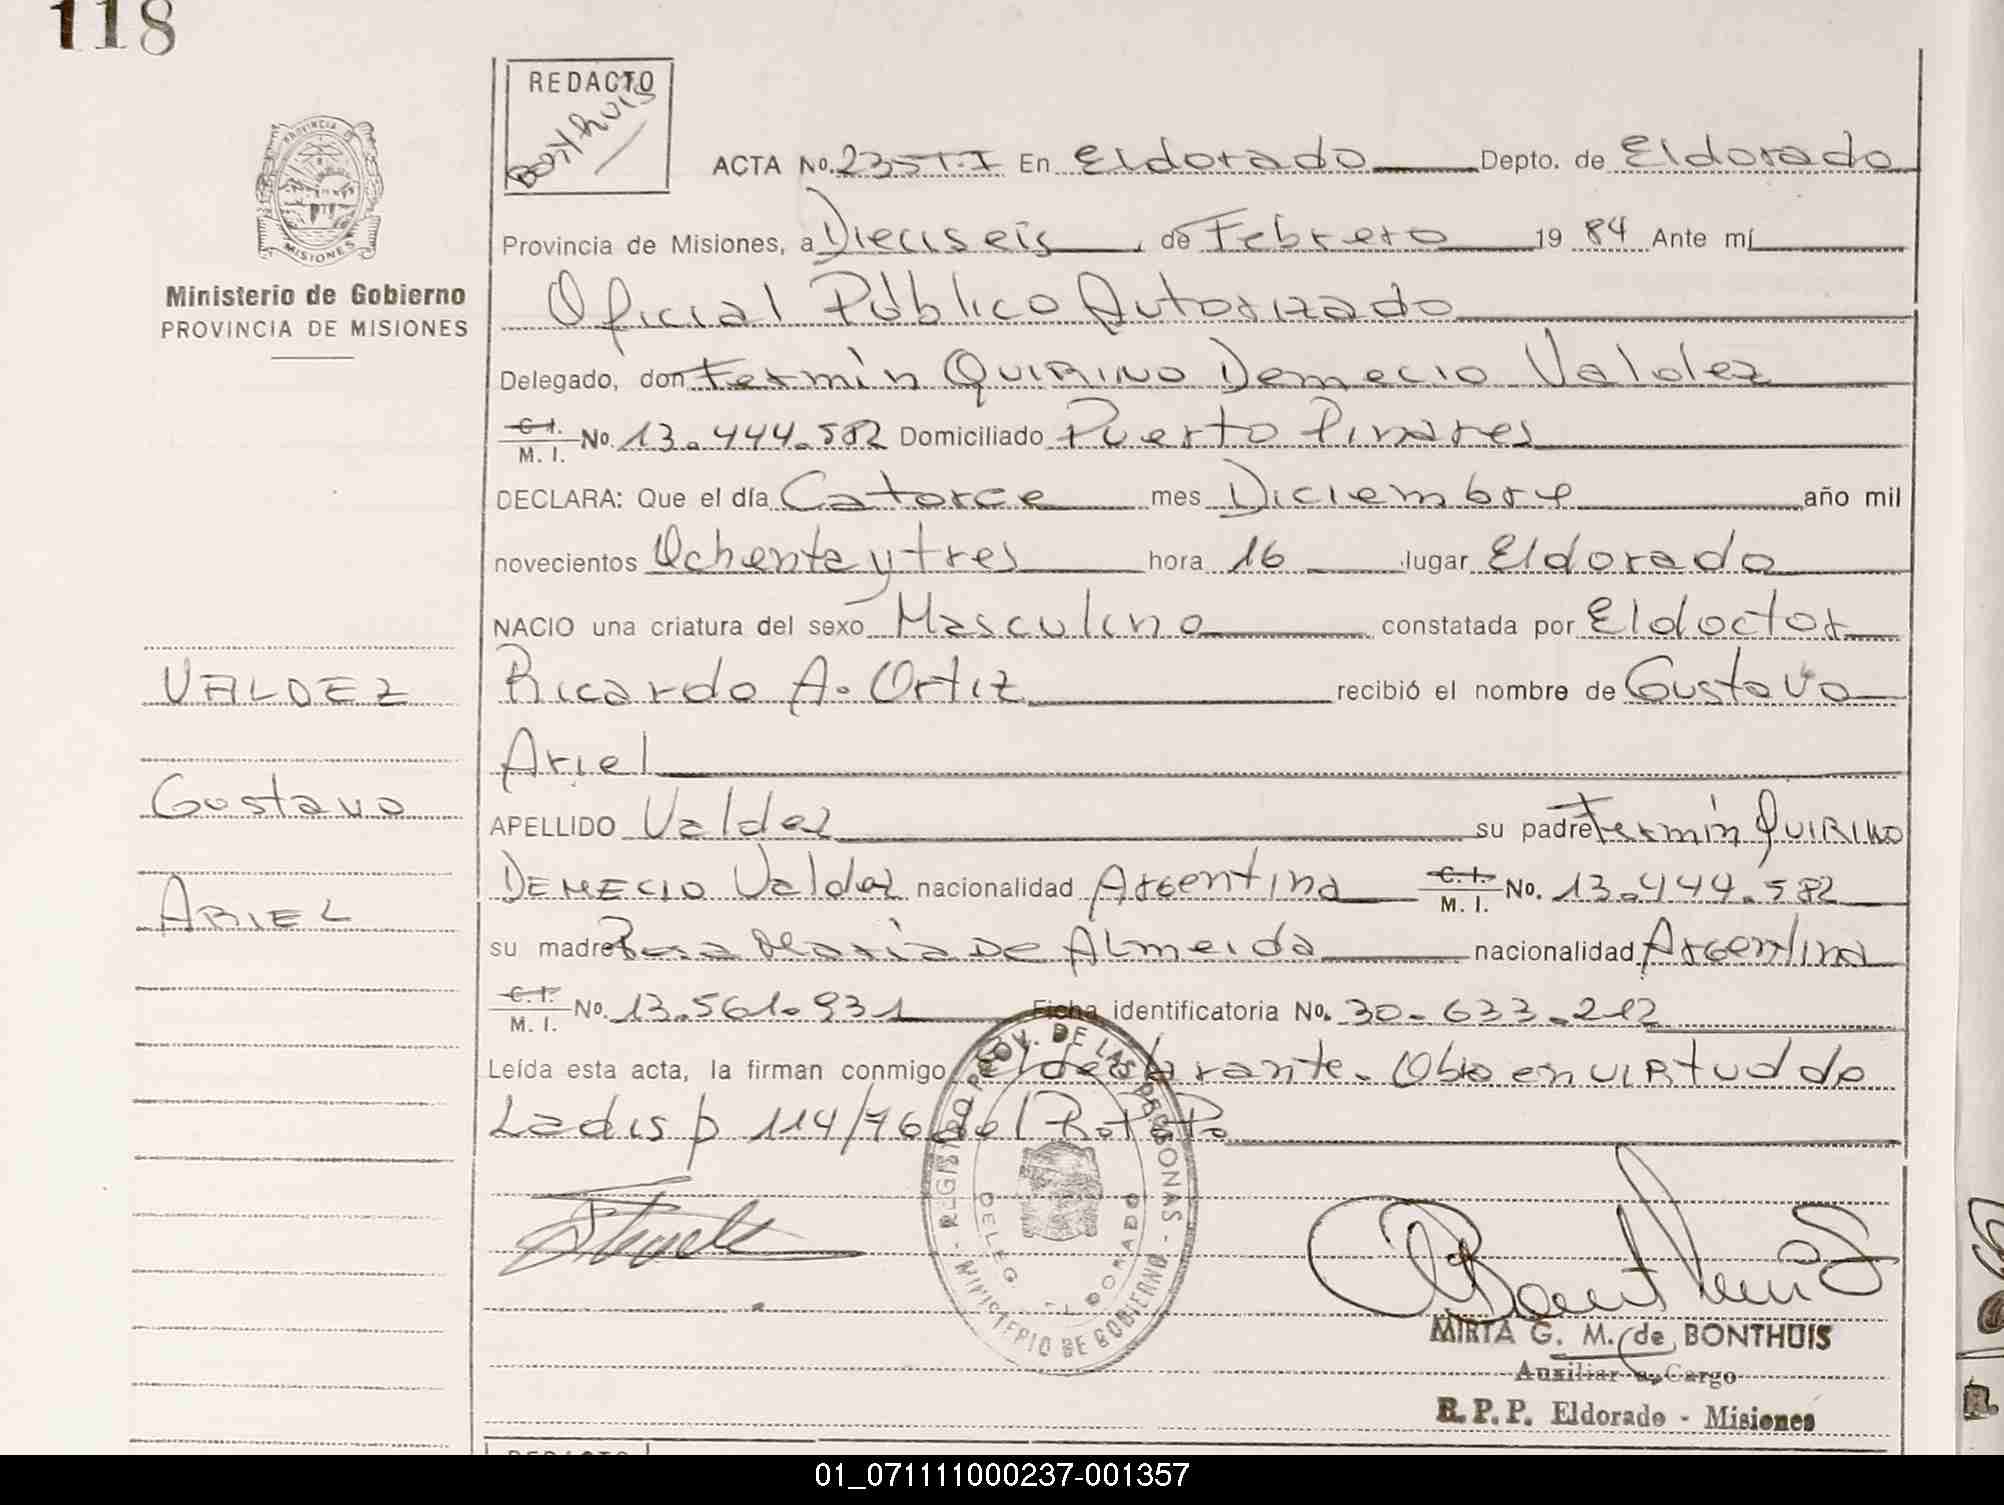 118
REDACTO
Bonthuis
PROVINCIA DE
MISIONES
Ministerio de Gobierno
PROVINCIA DE MISIONES
ACTA No. 235 T.I En Eldorado Depto. de Eldorado
Provincia de Misiones, a Dieciseis de Febrero 19 84 Ante mí
Oficial Público Autorizado
Delegado, don Fermín QUIRINO Demecio Valdez
C.I. M.I. No. 13.444.582 Domiciliado Puerto Pinares
DECLARA: Que el día Catorce mes Diciembre año mil
novecientos Ochenta y tres hora 16 lugar Eldorado
NACIO una criatura del sexo Masculino constatada por El doctor
Ricardo A. Ortiz recibió el nombre de Gustavo
Ariel
APELLIDO Valdez su padre Fermín QUIRINO
DEMECIO Valdez nacionalidad Argentina C.I. M.I. No. 13.444.582
su madre Rosa Maria De Almeida nacionalidad Argentina
C.I. M.I. No. 13.561.931 Ficha identificatoria No. 30.633.212
Leída esta acta, la firman conmigo el declarante. Obro en VIRtud de
La disp 114/76 del R.P.P.
VALDEZ
Gustavo
ARIEL
REGISTRO PROV. DE LAS PERSONAS - MINISTERIO DE GOBIERNO -
DELEG. ELDORADO
MIRTA G. M. de BONTHUIS
Auxiliar a Cargo
R. P. P. Eldorado - Misiones
REDACTO
01_071111000237-001357